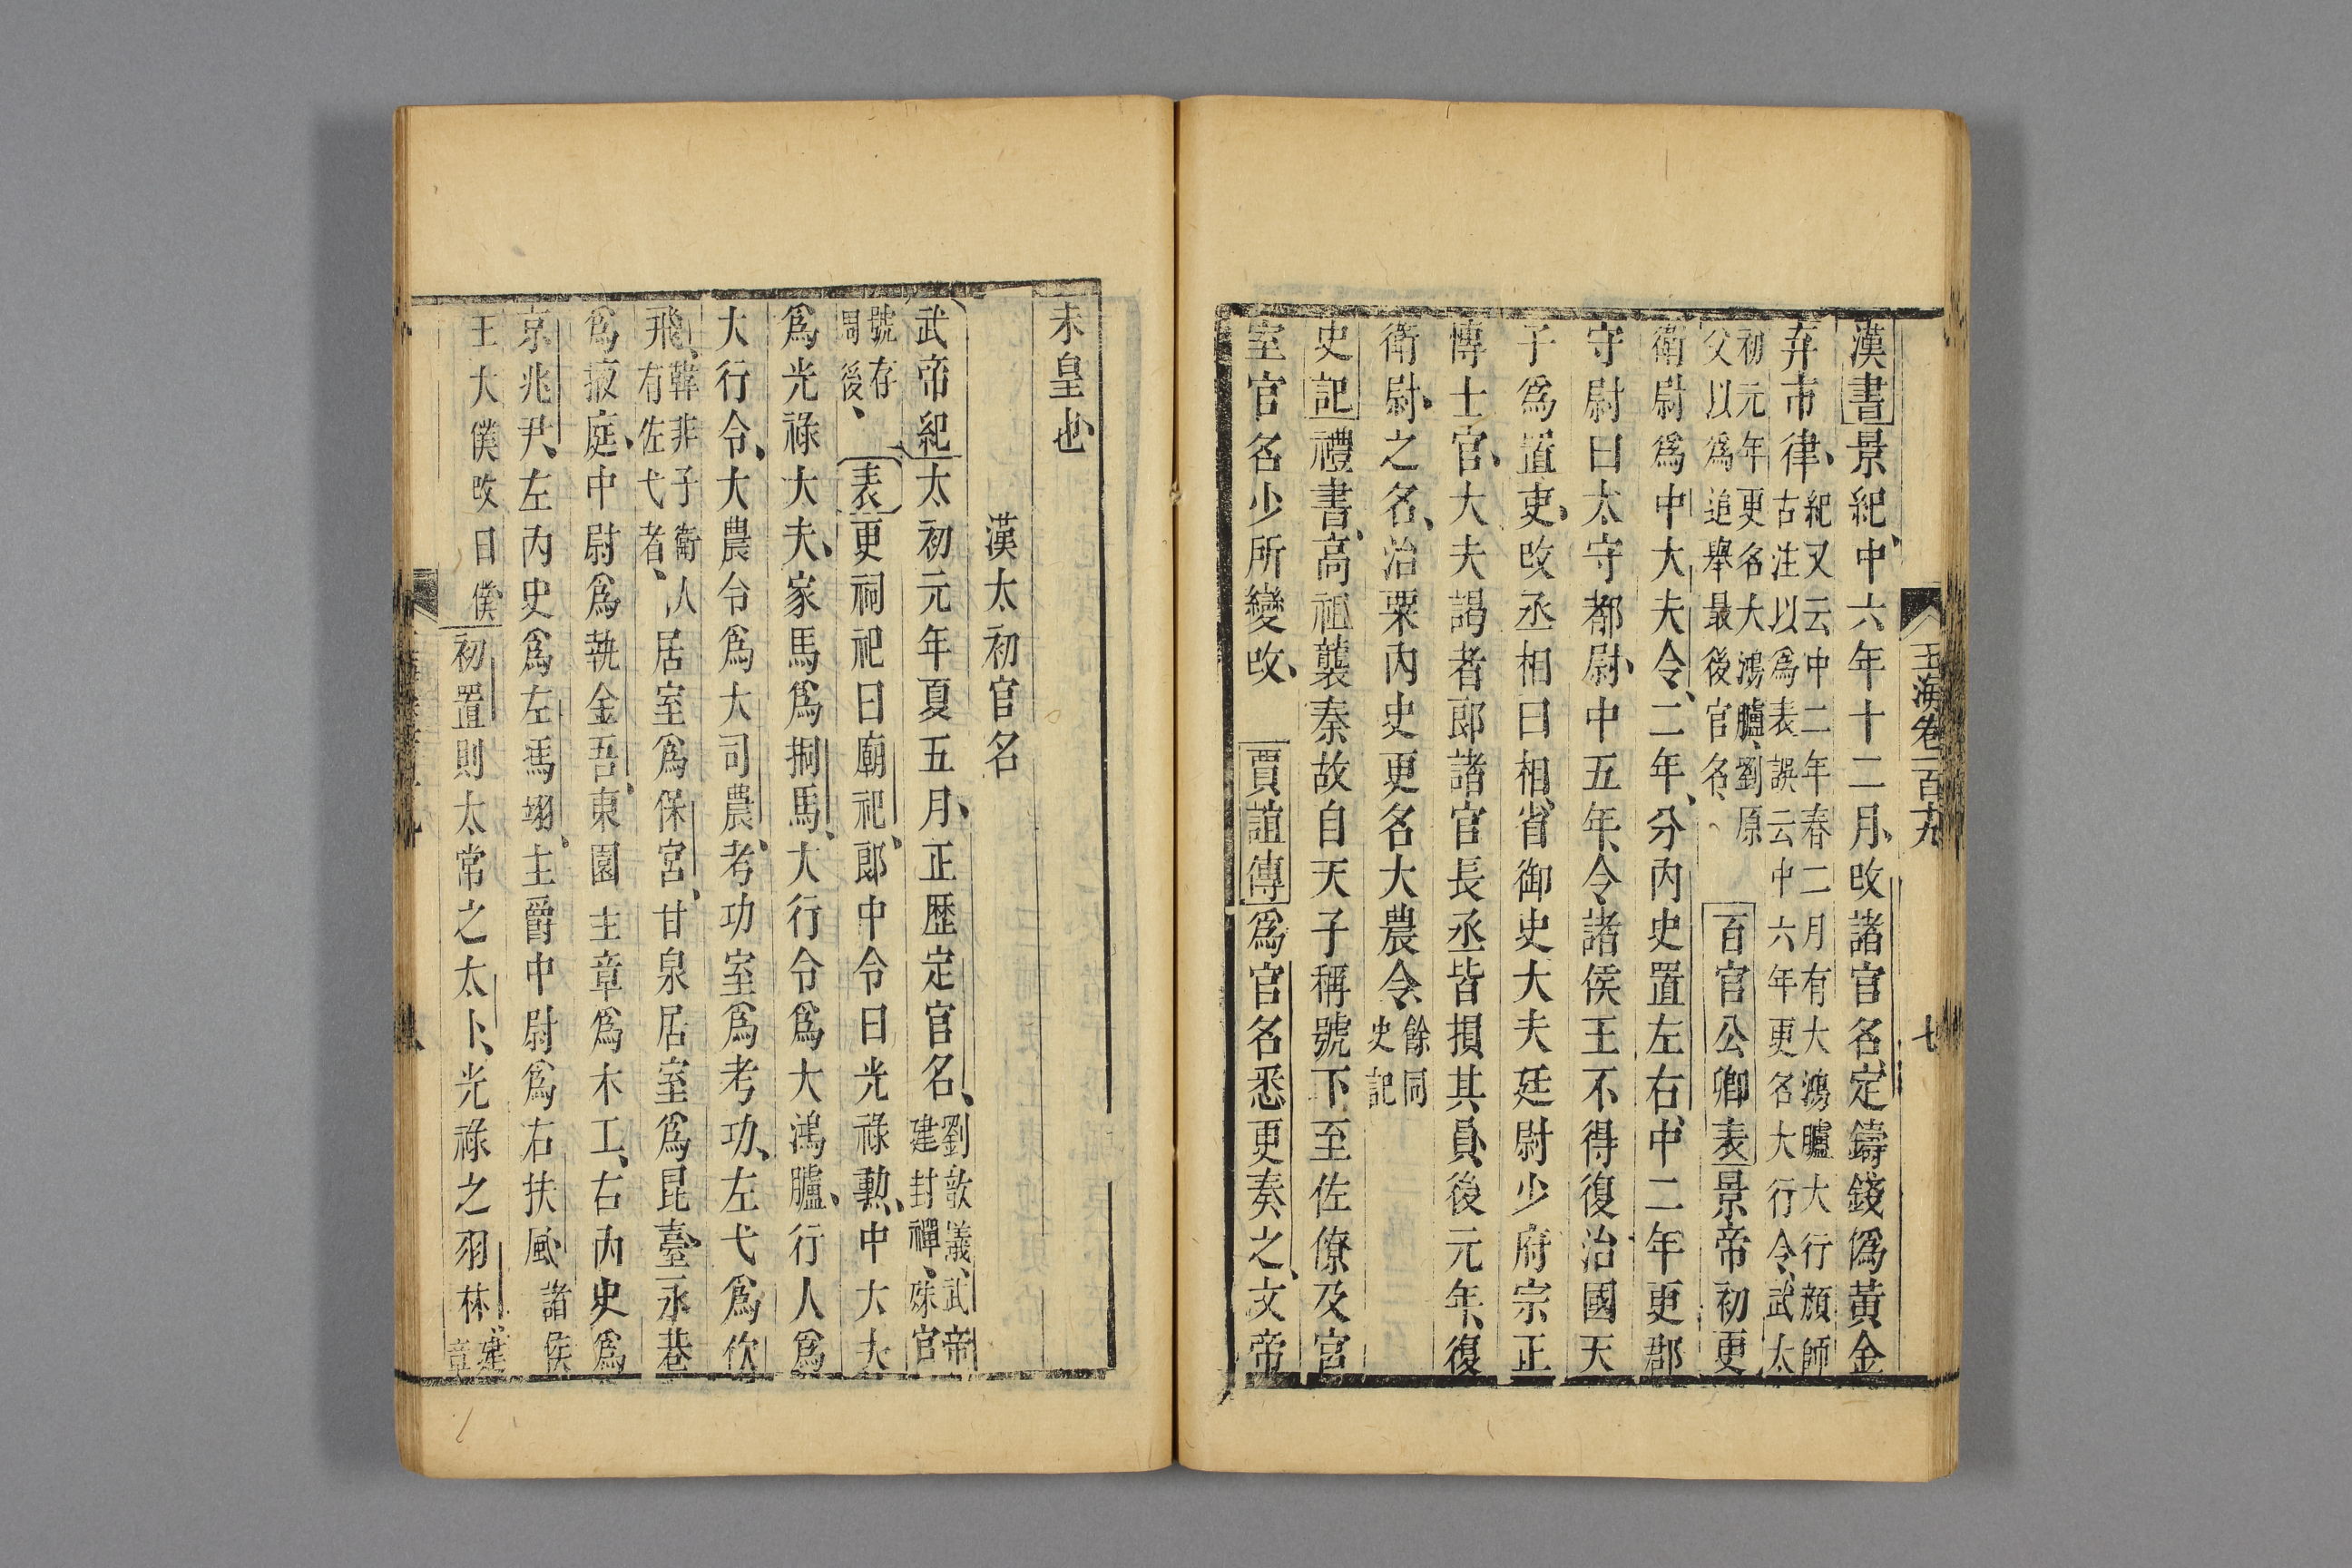 玉海卷一百十九
七
漢書景紀中六年十二月改諸官名定鑄錢僞黃金
弃市律紀又云中二年春二月有大鴻臚大行顏師
古注以爲表誤云中六年更名大行令武太
初元年更名大鴻臚劉原
父以爲追舉最後官名百官公卿表景帝初更
衛尉爲中大夫令二年分內史置左右中二年更郡
守尉曰太守都尉中五年令諸侯王不得復治國天
子爲置吏改丞相曰相省御史大夫廷尉少府宗正
博士官大夫謁者郎諸官長丞皆損其員後元年復
衛尉之名治粟內史更名大農令餘同
史記
史記禮書高祖襲秦故自天子稱號下至佐僚及宮
室官名少所變改賈誼傳爲官名悉更奏之文帝
未皇也
漢太初官名
武帝紀太初元年夏五月正歷定官名劉歆議武帝
建封禪殊官
號存
周後表更祠祀曰廟祀郎中令曰光祿勳中大夫
爲光祿大夫家馬爲挏馬大行令爲大鴻臚行人爲
大行令大農令爲大司農考功室爲考功左弋爲佽
飛韓非子衛人
有佐弋者居室爲保宮甘泉居室爲昆臺永巷
爲掖庭中尉爲執金吾東園主章爲木工右內史爲
京兆尹左內史爲左馮翊主爵中尉爲右扶風諸侯
王大僕改曰僕初置則太常之太卜光祿之羽林建
章